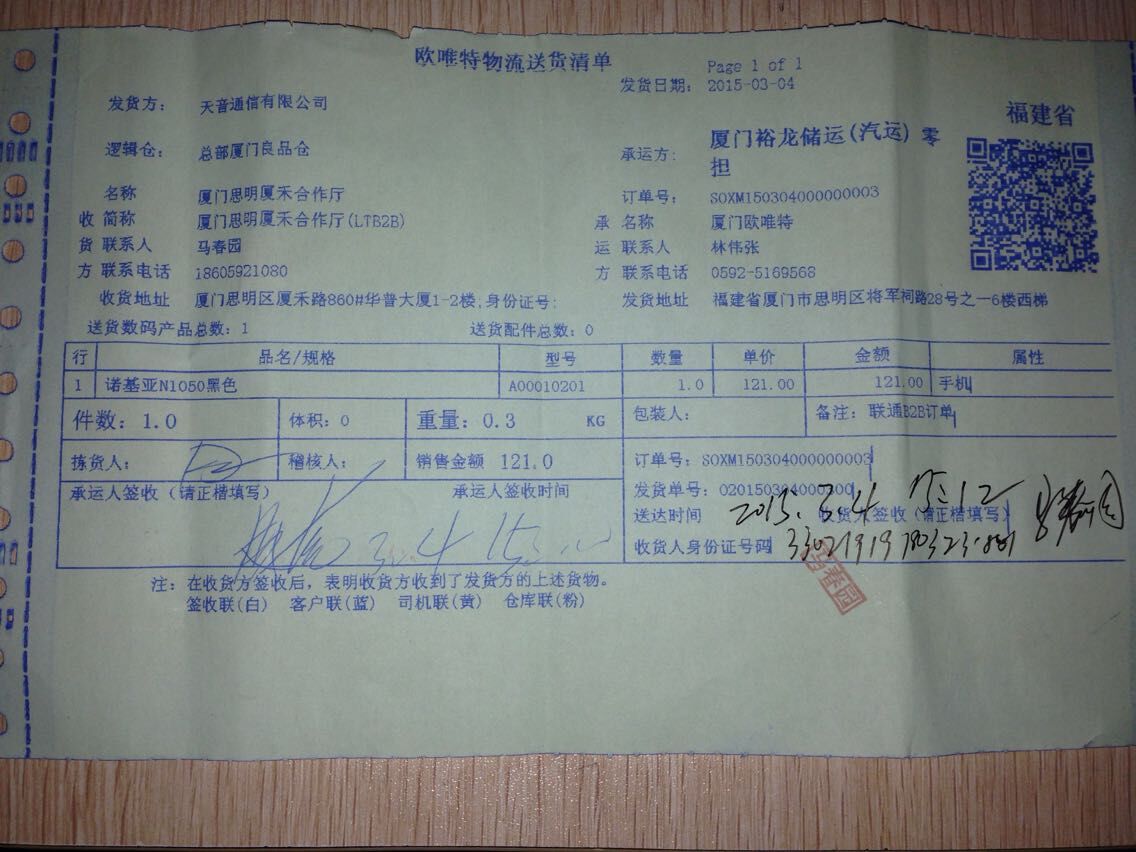 欧唯特物流送货清单
Page 1 of 1
发货日期：2015-03-04
发货方：天音通信有限公司
福建省
逻辑仓：总部厦门良品仓
承运方：厦门裕龙储运(汽运) 零担
名称 厦门思明厦禾合作厅
订单号：SOXM150304000000003
收 简称 厦门思明厦禾合作厅(LTB2B)
承 名称 厦门欧唯特
货 联系人 马春园
运 联系人 林伟张
方 联系电话 18605921080
方 联系电话 0592-5169568
收货地址 厦门思明区厦禾路860#华普大厦1-2楼;身份证号:
发货地址 福建省厦门市思明区将军祠路28号之一6楼西梯
送货数码产品总数：1 送货配件总数：0
行 品名/规格 型号 数量 单价 金额 属性
1 诺基亚N1050黑色 A00010201 1.0 121.00 121.00 手机
件数：1.0 体积：0 重量：0.3 KG 包装人： 备注：联通B2B订单
拣货人： 稽核人： 销售金额 121.0 订单号：SOXM150304000000003
承运人签收（请正楷填写） 承运人签收时间
3.4 15:
发货单号：020150304000300
送达时间 2015.3.4 15:12 收货人签收（请正楷填写） 马春园
收货人身份证号码
马春园
注：在收货方签收后，表明收货方收到了发货方的上述货物。
签收联(白) 客户联(蓝) 司机联(黄) 仓库联(粉)